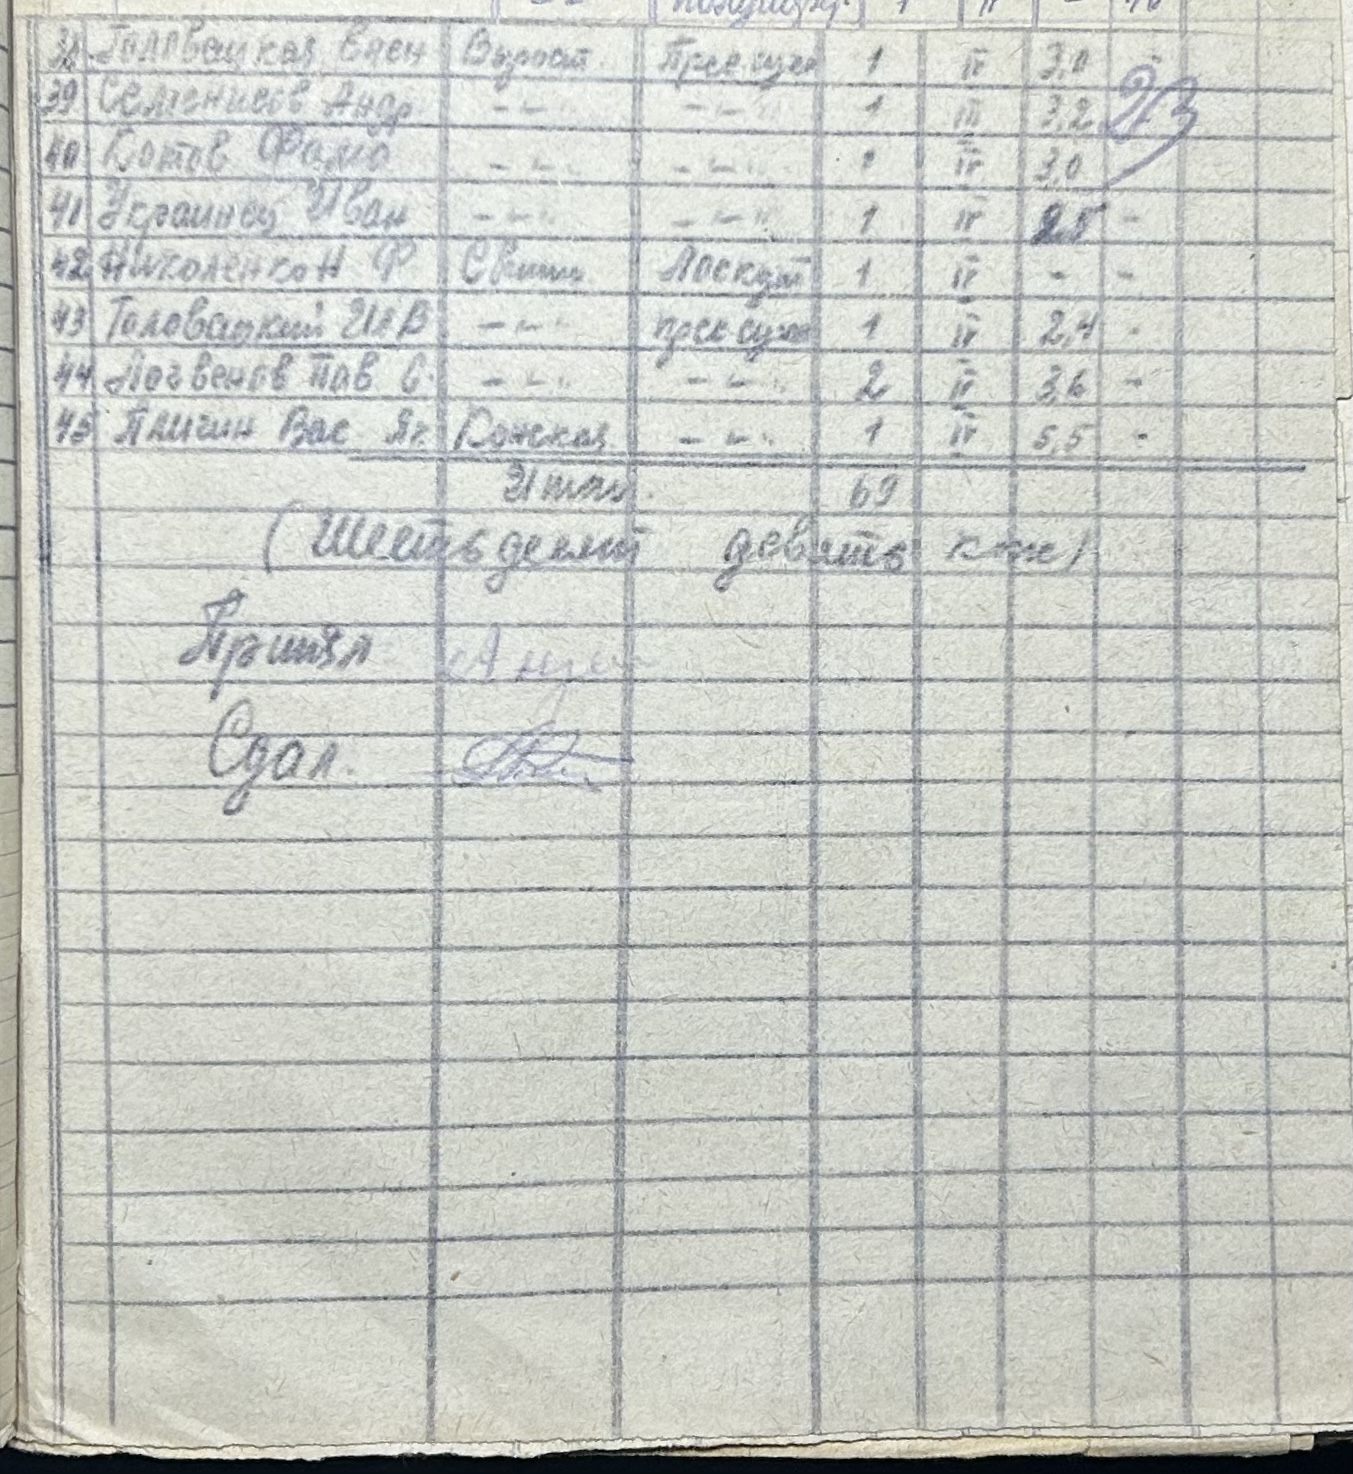 38 Головацкая Елен Взросл. Прессух 1 II 3,0 -
39 Селгенисов Андр -"- -"- 1 III 3,2 23
40 Котов Фома -"- -"- 1 II 3,0
41 Украинец Иван -"- -"- 1 II 2.5 -
42 Николенко Н Ф Свиш Лоскут 1 II - -
43 Головацкий И В -"- прессухо 1 II 2,4 -
44 Логвенов Пав С. -"- -"- 2 II 3,6 -
45 Пличин Вас Як. Конская -"- 1 II 5,5 -
Итого. 69
(Шестьдесят девять кож)
Принял
Сдал.